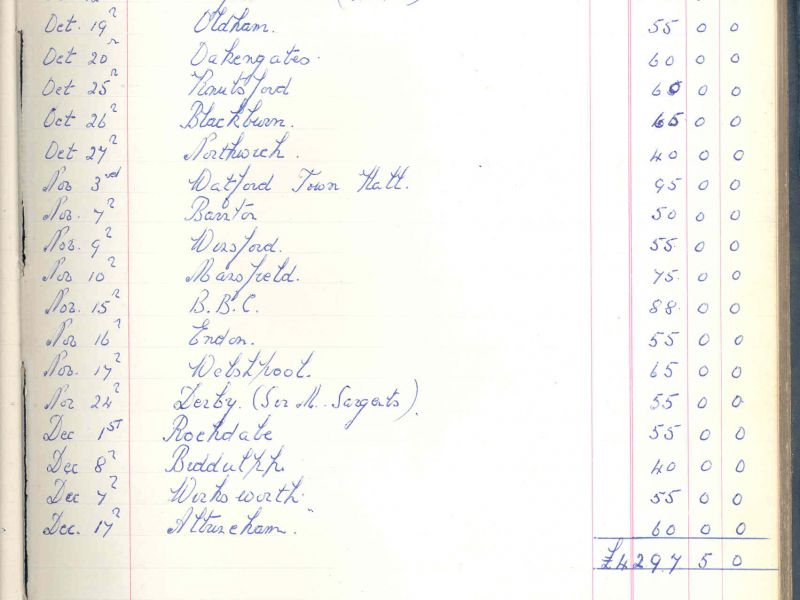 Oct. 19th Oldham. 55 0 0
Oct 20th Oakengates. 60 0 0
Oct 25th Knutsford 60 0 0
Oct 26th Blackburn. 65 0 0
Oct 27th Northwich. 40 0 0
Nov 3rd Watford Town Hall. 95 0 0
Nov. 7th 50 0 0
Nov. 9th Winsford. 55 0 0
Nov 10th Mansfield. 75 0 0
Nov. 15th B.B.C. 88 0 0
Nov 16th Endon. 55 0 0
Nov. 17th Welshpool. 65 0 0
Nov 24th Derby. (Sir M. Sargents). 55 0 0
Dec 1st Rochdale 55 0 0
Dec 8th Biddulph. 40 0 0
Dec 7th Wirksworth. 55 0 0
Dec. 17th Altrincham. 60 0 0
£4297 5 0